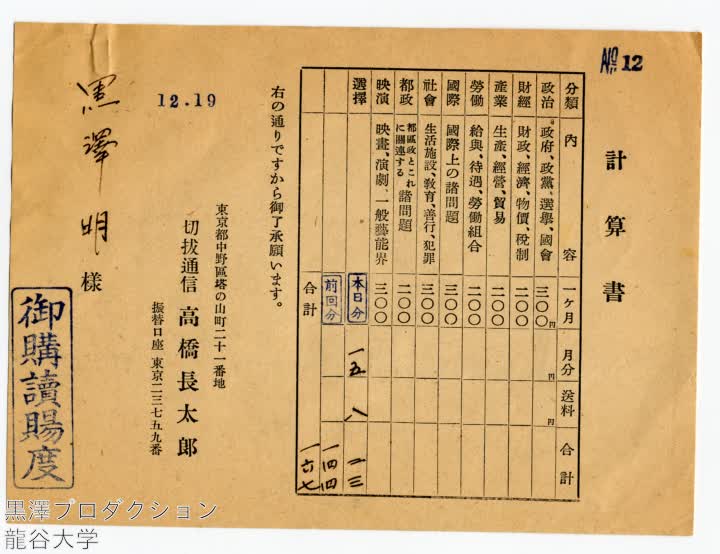 No 12
計算書
分類 內容 一ケ月 月分 送料 合計
政治 政府、政黨、選擧、國會 三〇〇円 円 円
財經 財政、經濟、物價、稅制 二〇〇
產業 生產、經營、貿易 二〇〇
勞働 給與、待遇、勞働組合 二〇〇
國際 國際上の諸問題 二〇〇
社會 生活施設、敎育、善行、犯罪 三〇〇
都政 都區政とこれに關連する諸問題 二〇〇
映演 映畫、演劇、一般藝能界 三〇〇
選擇 本日分 一五 八 二三
前回分 一四四
合計 一六七
右の通りですから御了承願います。
12.19
東京都中野區塔の山町二十一番地
切拔通信 高橋長太郎
振替口座 東京二三七五九番
黒澤明樣
御購讀賜度
黒澤プロダクション
龍谷大学